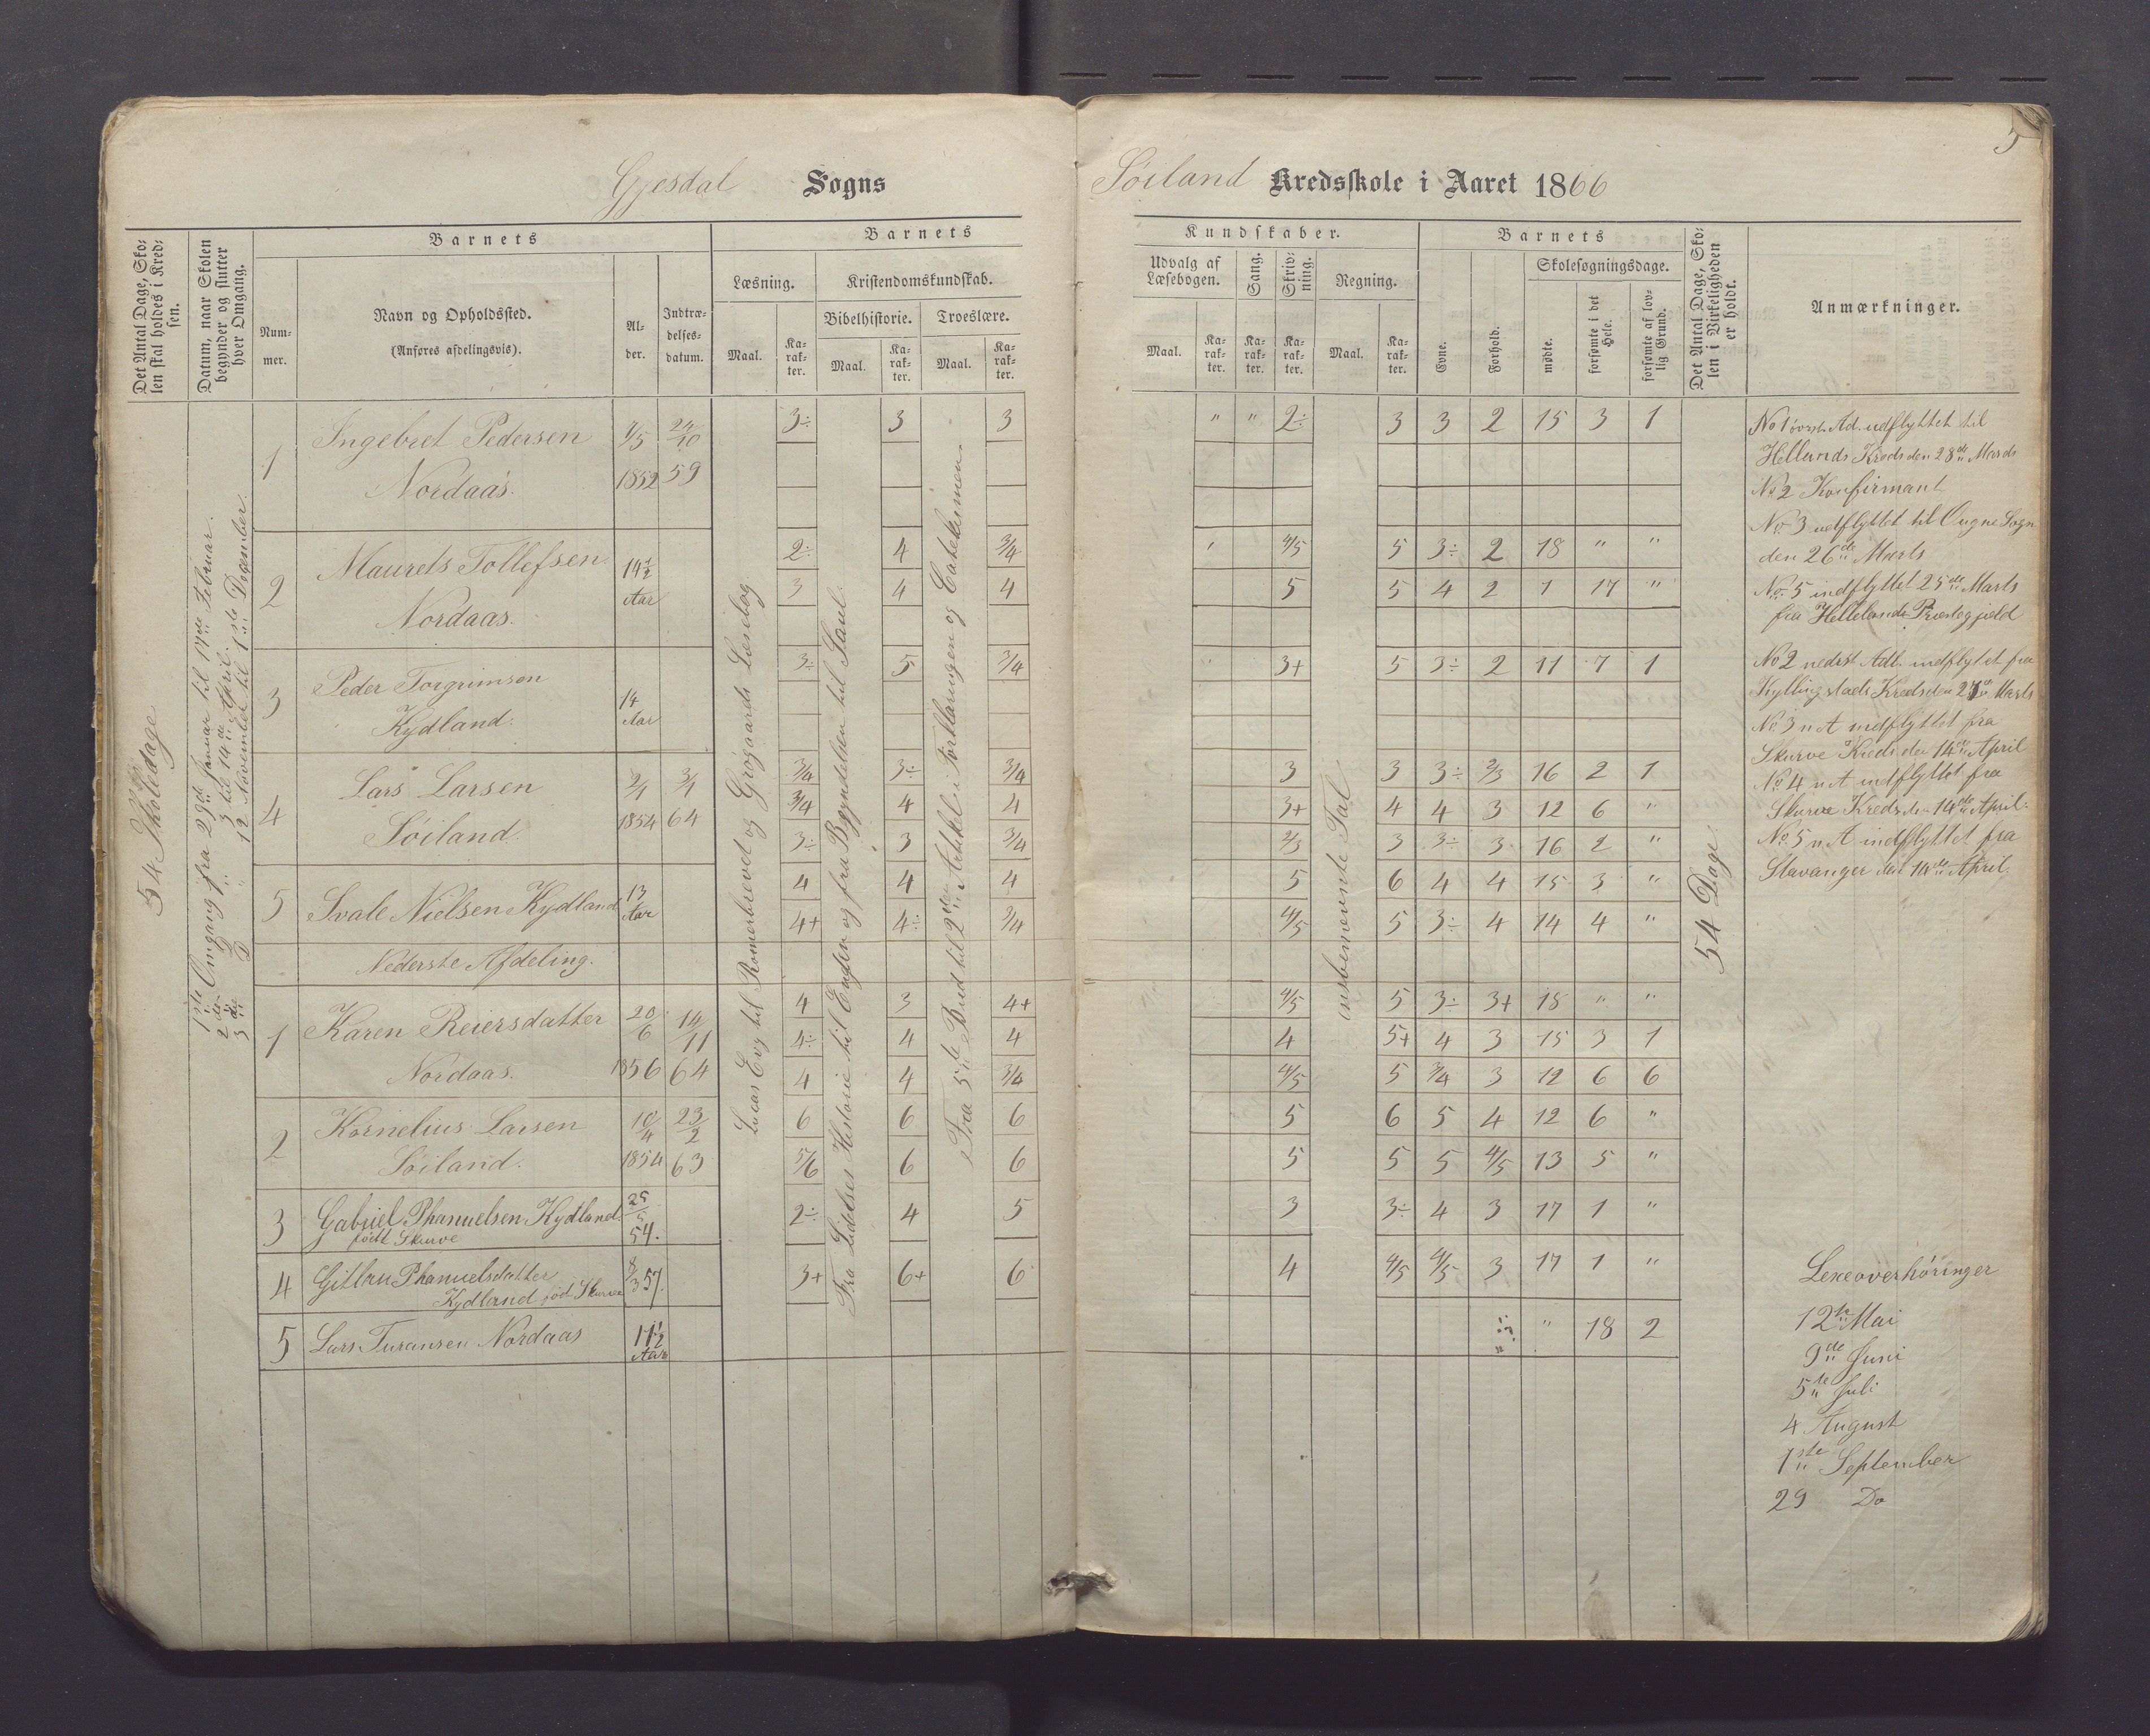 Gjesdal Sogns
Søiland Kredsskole i Aaret 1866
3
Det Antal Dage, Sko-
len skal holdes i Kred-
sen.
Datum, naar Skolen
begynder og slutter
hver Omgang.
Barnets
Num-
mer.
Navn og Opholdssted.
(Anføres afdelingsvis).
Al-
der.
Indtræ-
delses-
datum.
Barnets
Læsning.
Maal.
Ka-
rak-
ter.
Kristendomskundskab.
Bibelhistorie.
Maal.
Ka-
rak-
ter.
Troeslære.
Maal.
Ka-
rak-
ter.
Kundskaber.
Udvalg af
Læsebogen.
Maal.
Ka-
rak-
ter.
Sang.
Ka-
rak-
ter.
Skriv-
ning.
Ka-
rak-
ter.
Regning.
Maal.
Ka-
rak-
ter.
Barnets
Evne.
Forhold.
Skolesøgningsdage.
mødte.
forsømte i det
Hele.
forsømte af lov-
lig Grund.
Det Antal Dage, Sko-
len i Virkeligheden
er holdt.
Anmærkninger.
54 Skoledage
1ste Omgang fra 29de Januar til 17de Februar.
2den D 3 til 14de April.
3die D 12 November til 1ste December.
1 Ingebret Pedersen 4/5 24/10
Nordaas. 1852 59
2 Maurets Tollefsen 14 1/2
Nordaas. Aar
3 Peder Torgrimson 14
Kydland. Aar
4 Lars Larsen 2/1 3/1
Søiland. 1854 64
5 Svale Nielsen Kydland 13
Aar
Nederste Afdeling.
1 Karen Reiersdatter 20/6 14/11
Nordaas. 1856 64
2 Kornelius Larsen 10/4 23/2
Søiland. 1854 63
3 Gabriel Phanuelsen Kydland. 25/5
født Skurve 54.
4 Gitlau Phanuelsdatter 8/3 57.
Kydland født Skurve
5 Lars Turansen Nordaas 11 1/2
Aar
Lucas Evg til Romerbrevet og Grøgaards Læsebog
Fra Lidelses Historie til Enden og fra Begyndelsen til Saul.
Fra 5te Bud til 2den Artikel i Forklaringen og Catekismen
ubenævnte Tal
54 Dage
3÷ 3 3 " " 2÷ 3 3 2 15 3 1
2÷ 4 3/4 4/5 5 3÷ 2 18 " "
3 4 4 5 5 4 2 1 17 "
3÷ 5 3/4 " 3+ 5 3÷ 2 11 7 1
3/4 3÷ 3/4 3 3 3÷ 2/3 16 2 1
3/4 4 4 3+ 4 4 3 12 6 "
3÷ 3 3/4 2/3 3 3÷ 3 16 2 "
4 4 4 5 6 4 4 15 3 "
4+ 4÷ 3/4 4/5 5 3÷ 4 14 4 "
4 3 4+ 4/5 5 3÷ 3+ 18 " "
4÷ 4 4 4 5+ 4 3 15 3 1
4 4 3/4 4/5 5 3/4 3 12 6 6
6 6 6 5 6 5 4 12 6 "
5/6 6 6 5 5 5 4/5 13 5 "
2÷ 4 5 3 3÷ 4 3 17 1 "
3+ 6+ 6 4 4/5 4/5 3 17 1 "
" 18 2
No 1 øverst. Ad. udflyttet til
Hellands Kreds den 28de Marts
No 2 Konfirmant
No 3 udflyttet til Ougne Sogn
den 26de Marts
No 5 indflyttet 25de Marts
fra Hellelands Præstegjeld
No 2 nederst Adl. indflyttet fra
Kyllingstads Kreds den 27de Marts
No 3 n A indflyttet fra
Skurve Kreds den 14de April
No 4 n A indflyttet fra
Skurve Kreds den 14de April.
No 5 n A indflyttet fra
Stavanger den 14de April.
Lexeoverhøringer
12te Mai
9de Juni
5te Juli
4 August
1ste September
29 Do